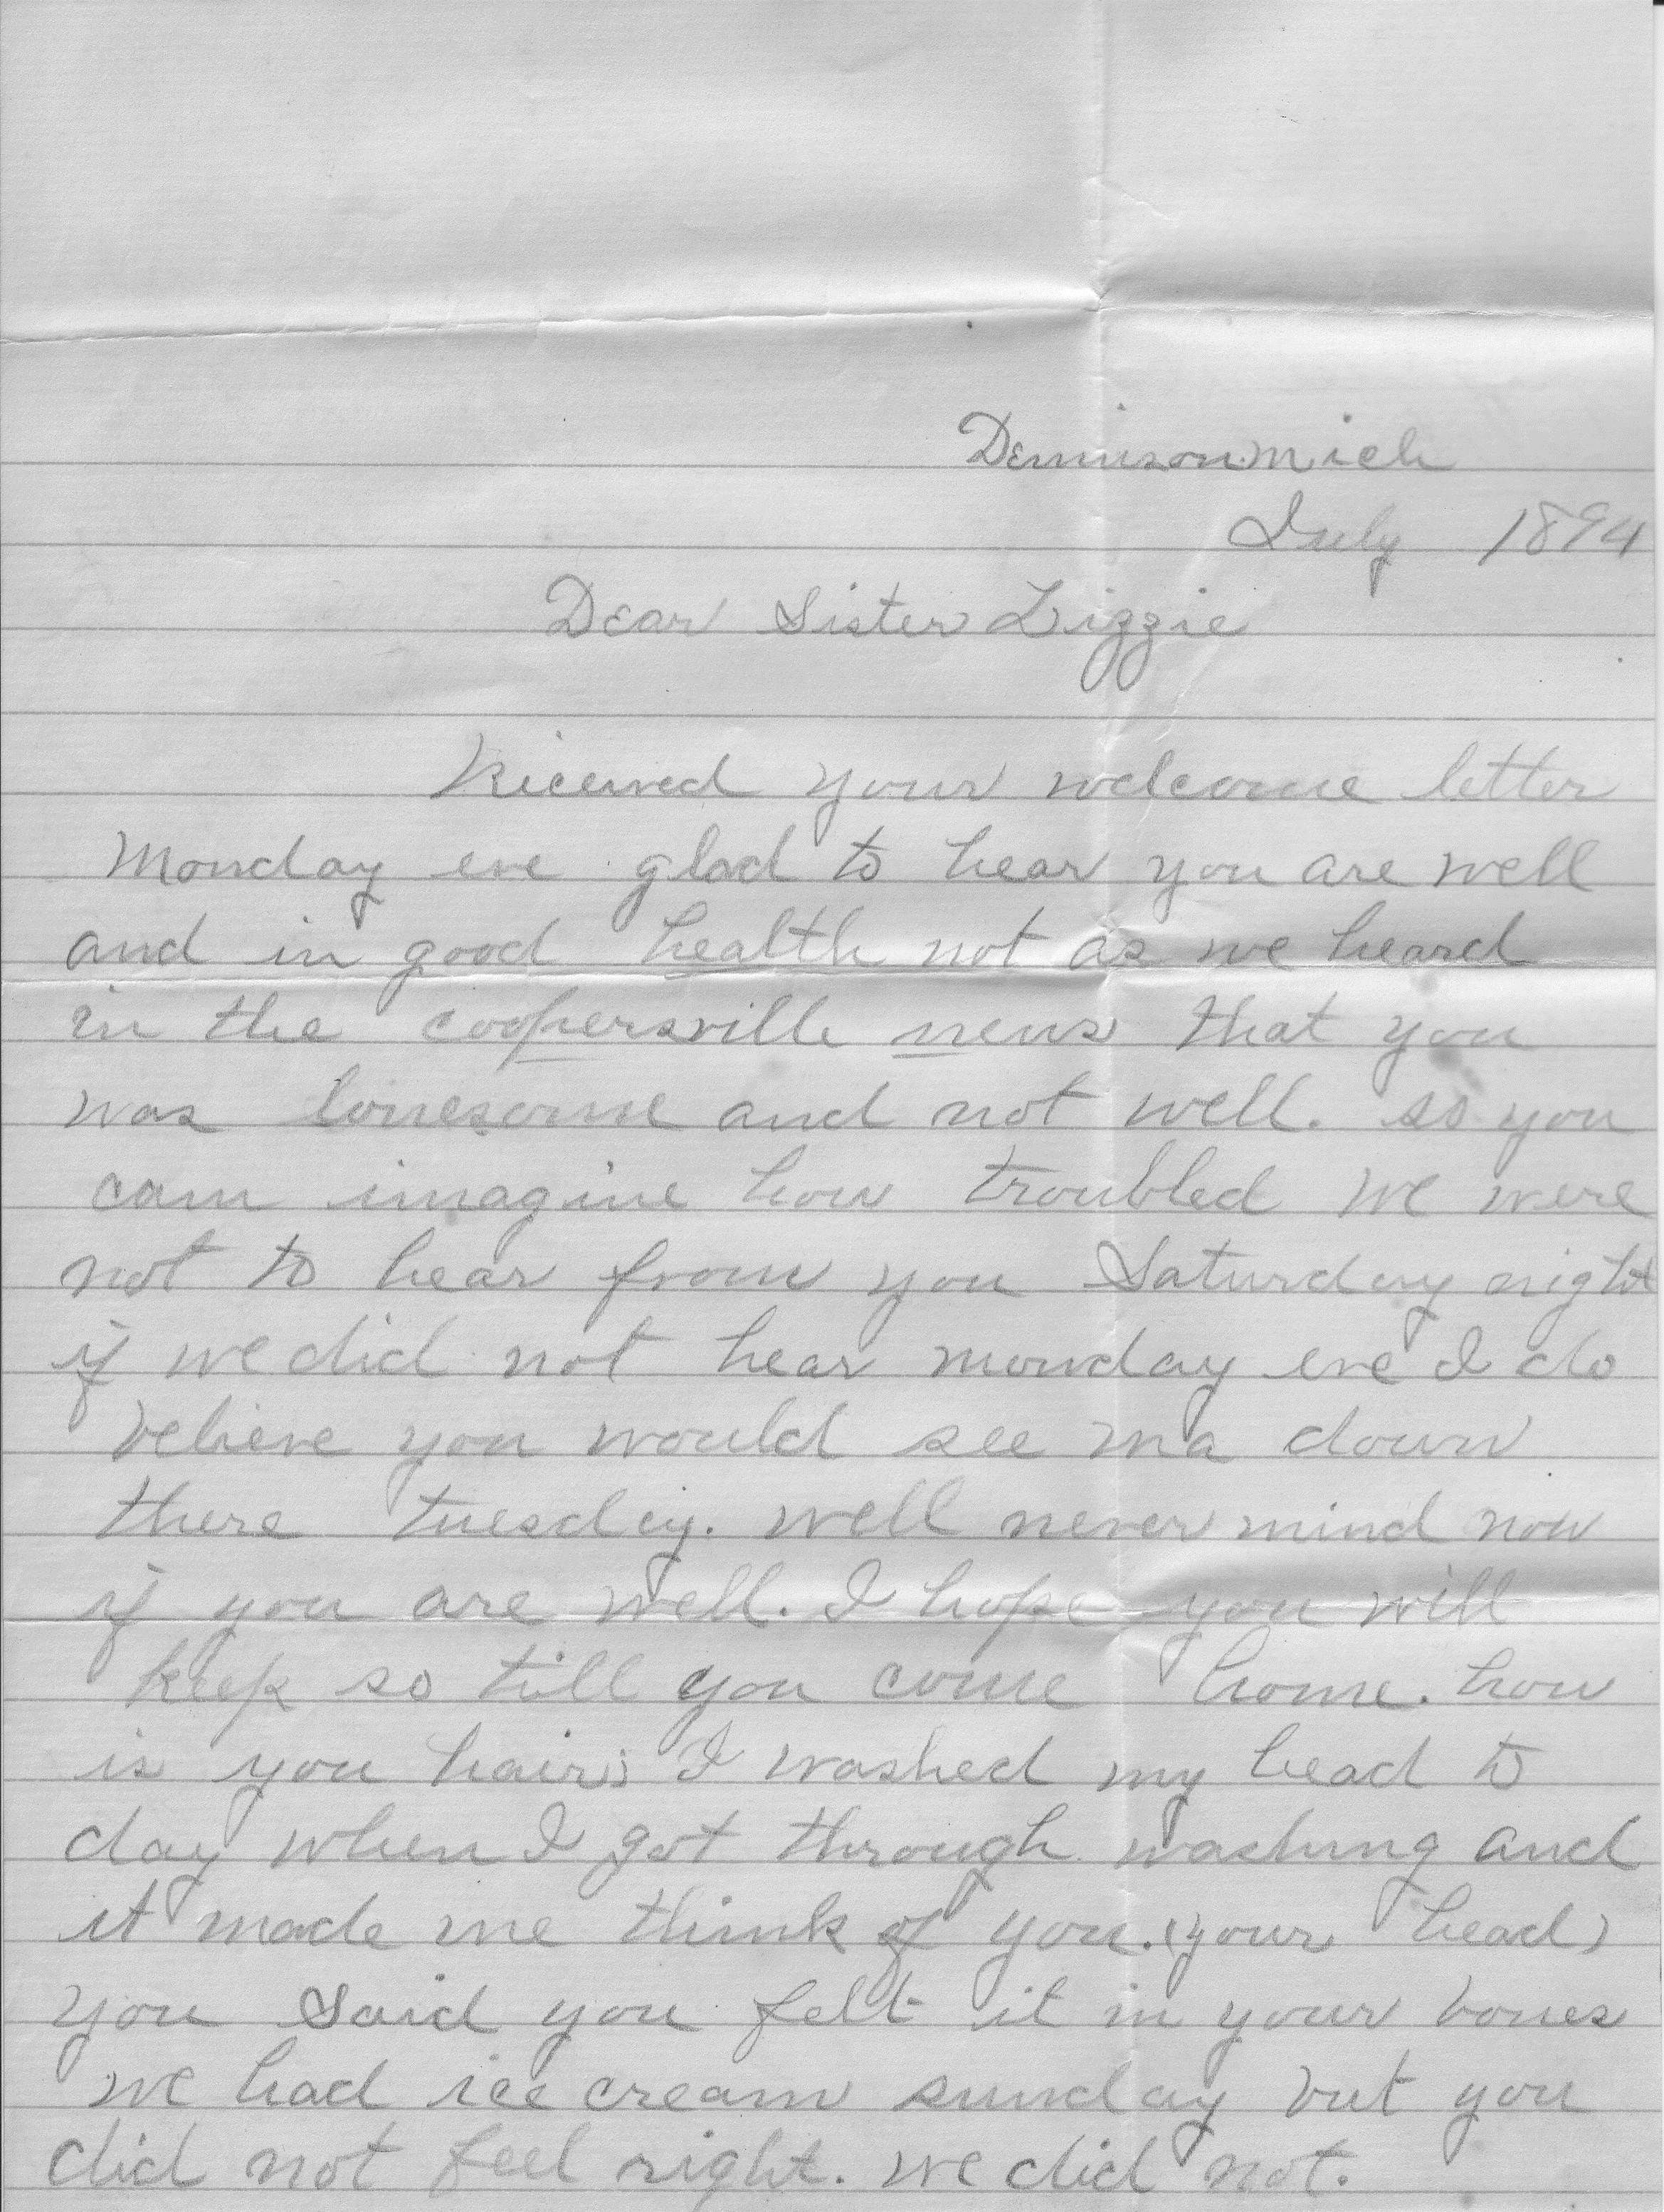 Dennison Mich
July 1894
Dear Sister Lizzie
Recieved your welcome letter
Monday eve glad to hear you are well
and in good health not as we heard
in the coopersville news that you
was lonesome and not well. so you
can imagine how troubled we were
not to hear from you Saturday night
if we did not hear monday eve I do
believe you would see ma down
there tuesday. well never mind now
if you are well. I hope you will
keep so till you come home. how
is you hair; I washed my head to
day when I got through washing and
it made me think of you. (your head)
you said you felt it in your bones
we had ice cream sunday but you
did not feel right. we did not.